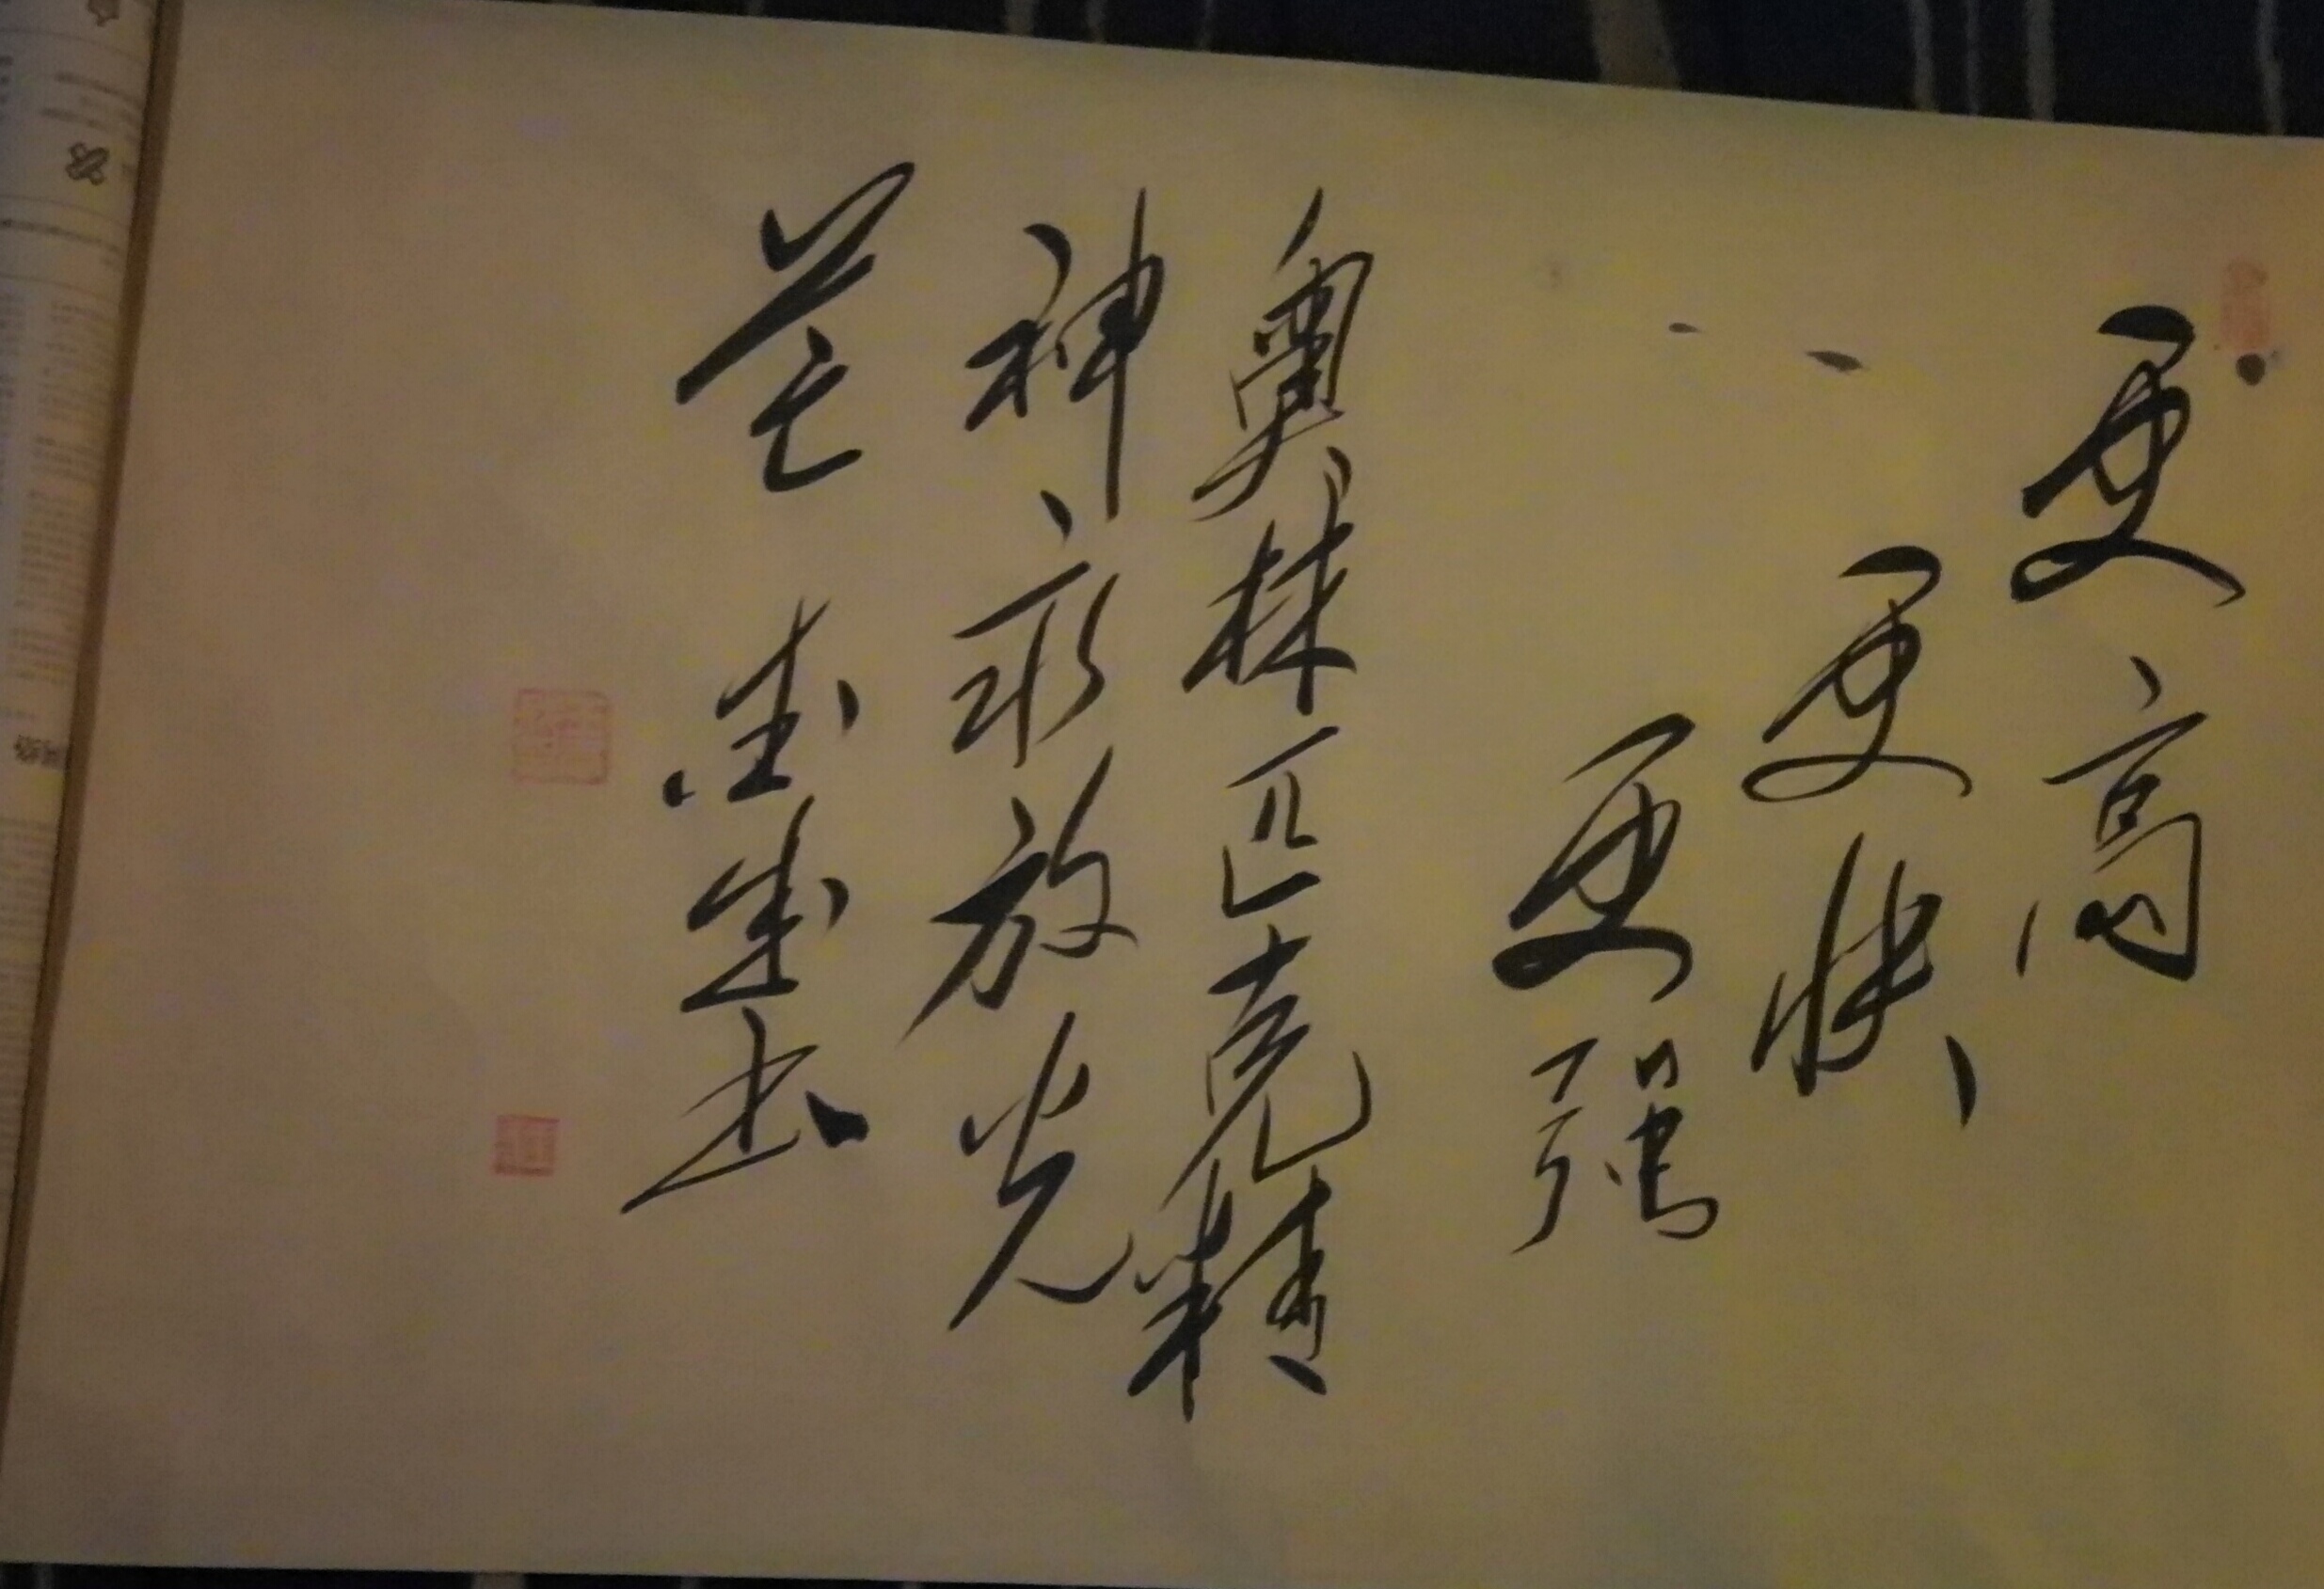 更高
更快
更强
奥林匹克精
神永放光
芒